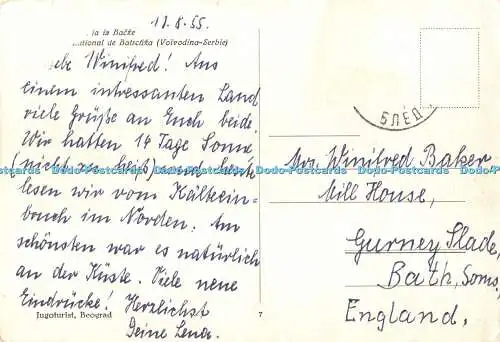 11.8.55.
ia iz Bačke
ational de Batschka (Voïvodina-Serbie)
Winifred! Aus
einem intressanten Land
viele Grüße an Euch beide.
Wir hatten 14 Tage Sonne
(nicht zu heiß) und heute
lesen wir vom Kältein-
bruch im Norden. Am
schönsten war es natürlich
an der Küste. Viele neue
Eindrücke! Herzlichst
Deine Lena.
Jugoturist, Beograd
7
БЛЕД
Mrs. Winifred Baker
Mill House,
Gurney Slade,
Bath, Soms.
England.
Dodo-Postcards Dodo-Postcards Dodo-Postcards Dodo-Postcards Dodo-Postcards Dodo-Postcards